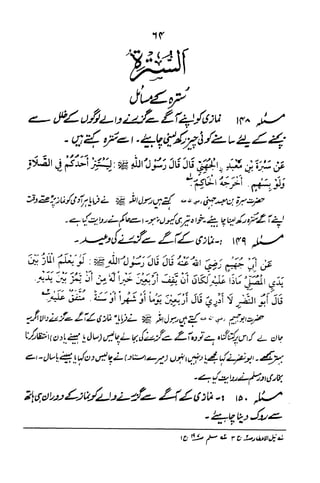 ۶۴
السُّتْرَةُ
سُترہ کے مسائل
مسئلہ ۱۴۸ نمازی کو اپنے آگے سے گزرنے والے لوگوں کے خلل سے
بچنے کے لئے سامنے کوئی چیز رکھ لینی چاہیئے۔ اسے سترہ کہتے ہیں۔
عَنْ سَبْرَةَ بْنِ مَعْبَدٍ الْجُهَنِيِّ قَالَ قَالَ رَسُولُ اللهِ ﷺ : لِيَسْتَتِرْ أَحَدُكُمْ فِي الصَّلَاةِ
وَلَوْ بِسَهْمٍ. أَخْرَجَهُ الْحَاكِمُ
حضرت سبرۃ بن معبد جہنی کہتے ہیں رسول اللہ ﷺ نے فرمایا آدمی کو نماز پڑھتے وقت
اپنے آگے سترہ رکھ لینا چاہیئے۔ خواہ تیر ہی کیوں نہ ہو۔ اسے حاکم نے روایت کیا ہے۔
مسئلہ ۱۴۹ :۔ نمازی کے آگے سے گزرنے کی وعید۔
عَنْ أَبِي جُهَيْمٍ رَضِيَ اللهُ عَنْهُ قَالَ قَالَ رَسُولُ اللهِ ﷺ : لَوْ يَعْلَمُ الْمَارُّ بَيْنَ
يَدَيِ الْمُصَلِّي مَاذَا عَلَيْهِ لَكَانَ أَنْ يَقِفَ أَرْبَعِينَ خَيْرًا لَهُ مِنْ أَنْ يَمُرَّ بَيْنَ يَدَيْهِ.
قَالَ أَبُو النَّضْرِ لَا أَدْرِي قَالَ أَرْبَعِينَ يَوْمًا أَوْ شَهْرًا أَوْ سَنَةً. مُتَّفَقٌ عَلَيْهِ
حضرت ابو جہیم کہتے ہیں رسول اللہ ﷺ نے فرمایا نمازی کے آگے سے گزرنے والا اگر یہ
جان لے کہ اس پر کتنا گناہ ہے تو وہ آگے سے گزرنے کی بجائے چالیس (سال یا مہینے یا دن) انتظار کرنا
بہتر سمجھے۔ ابو نضر نے کہا مجھے یاد نہیں انہوں (میرے استاد) نے چالیس دن کہا یا مہینے یا سال۔ اسے
بخاری اور مسلم نے روایت کیا ہے۔
مسئلہ ۱۵۰ :۔ نمازی کے آگے سے گزرنے والے کو نماز کے دوران ہی ہاتھ
سے روک دینا چاہیئے۔